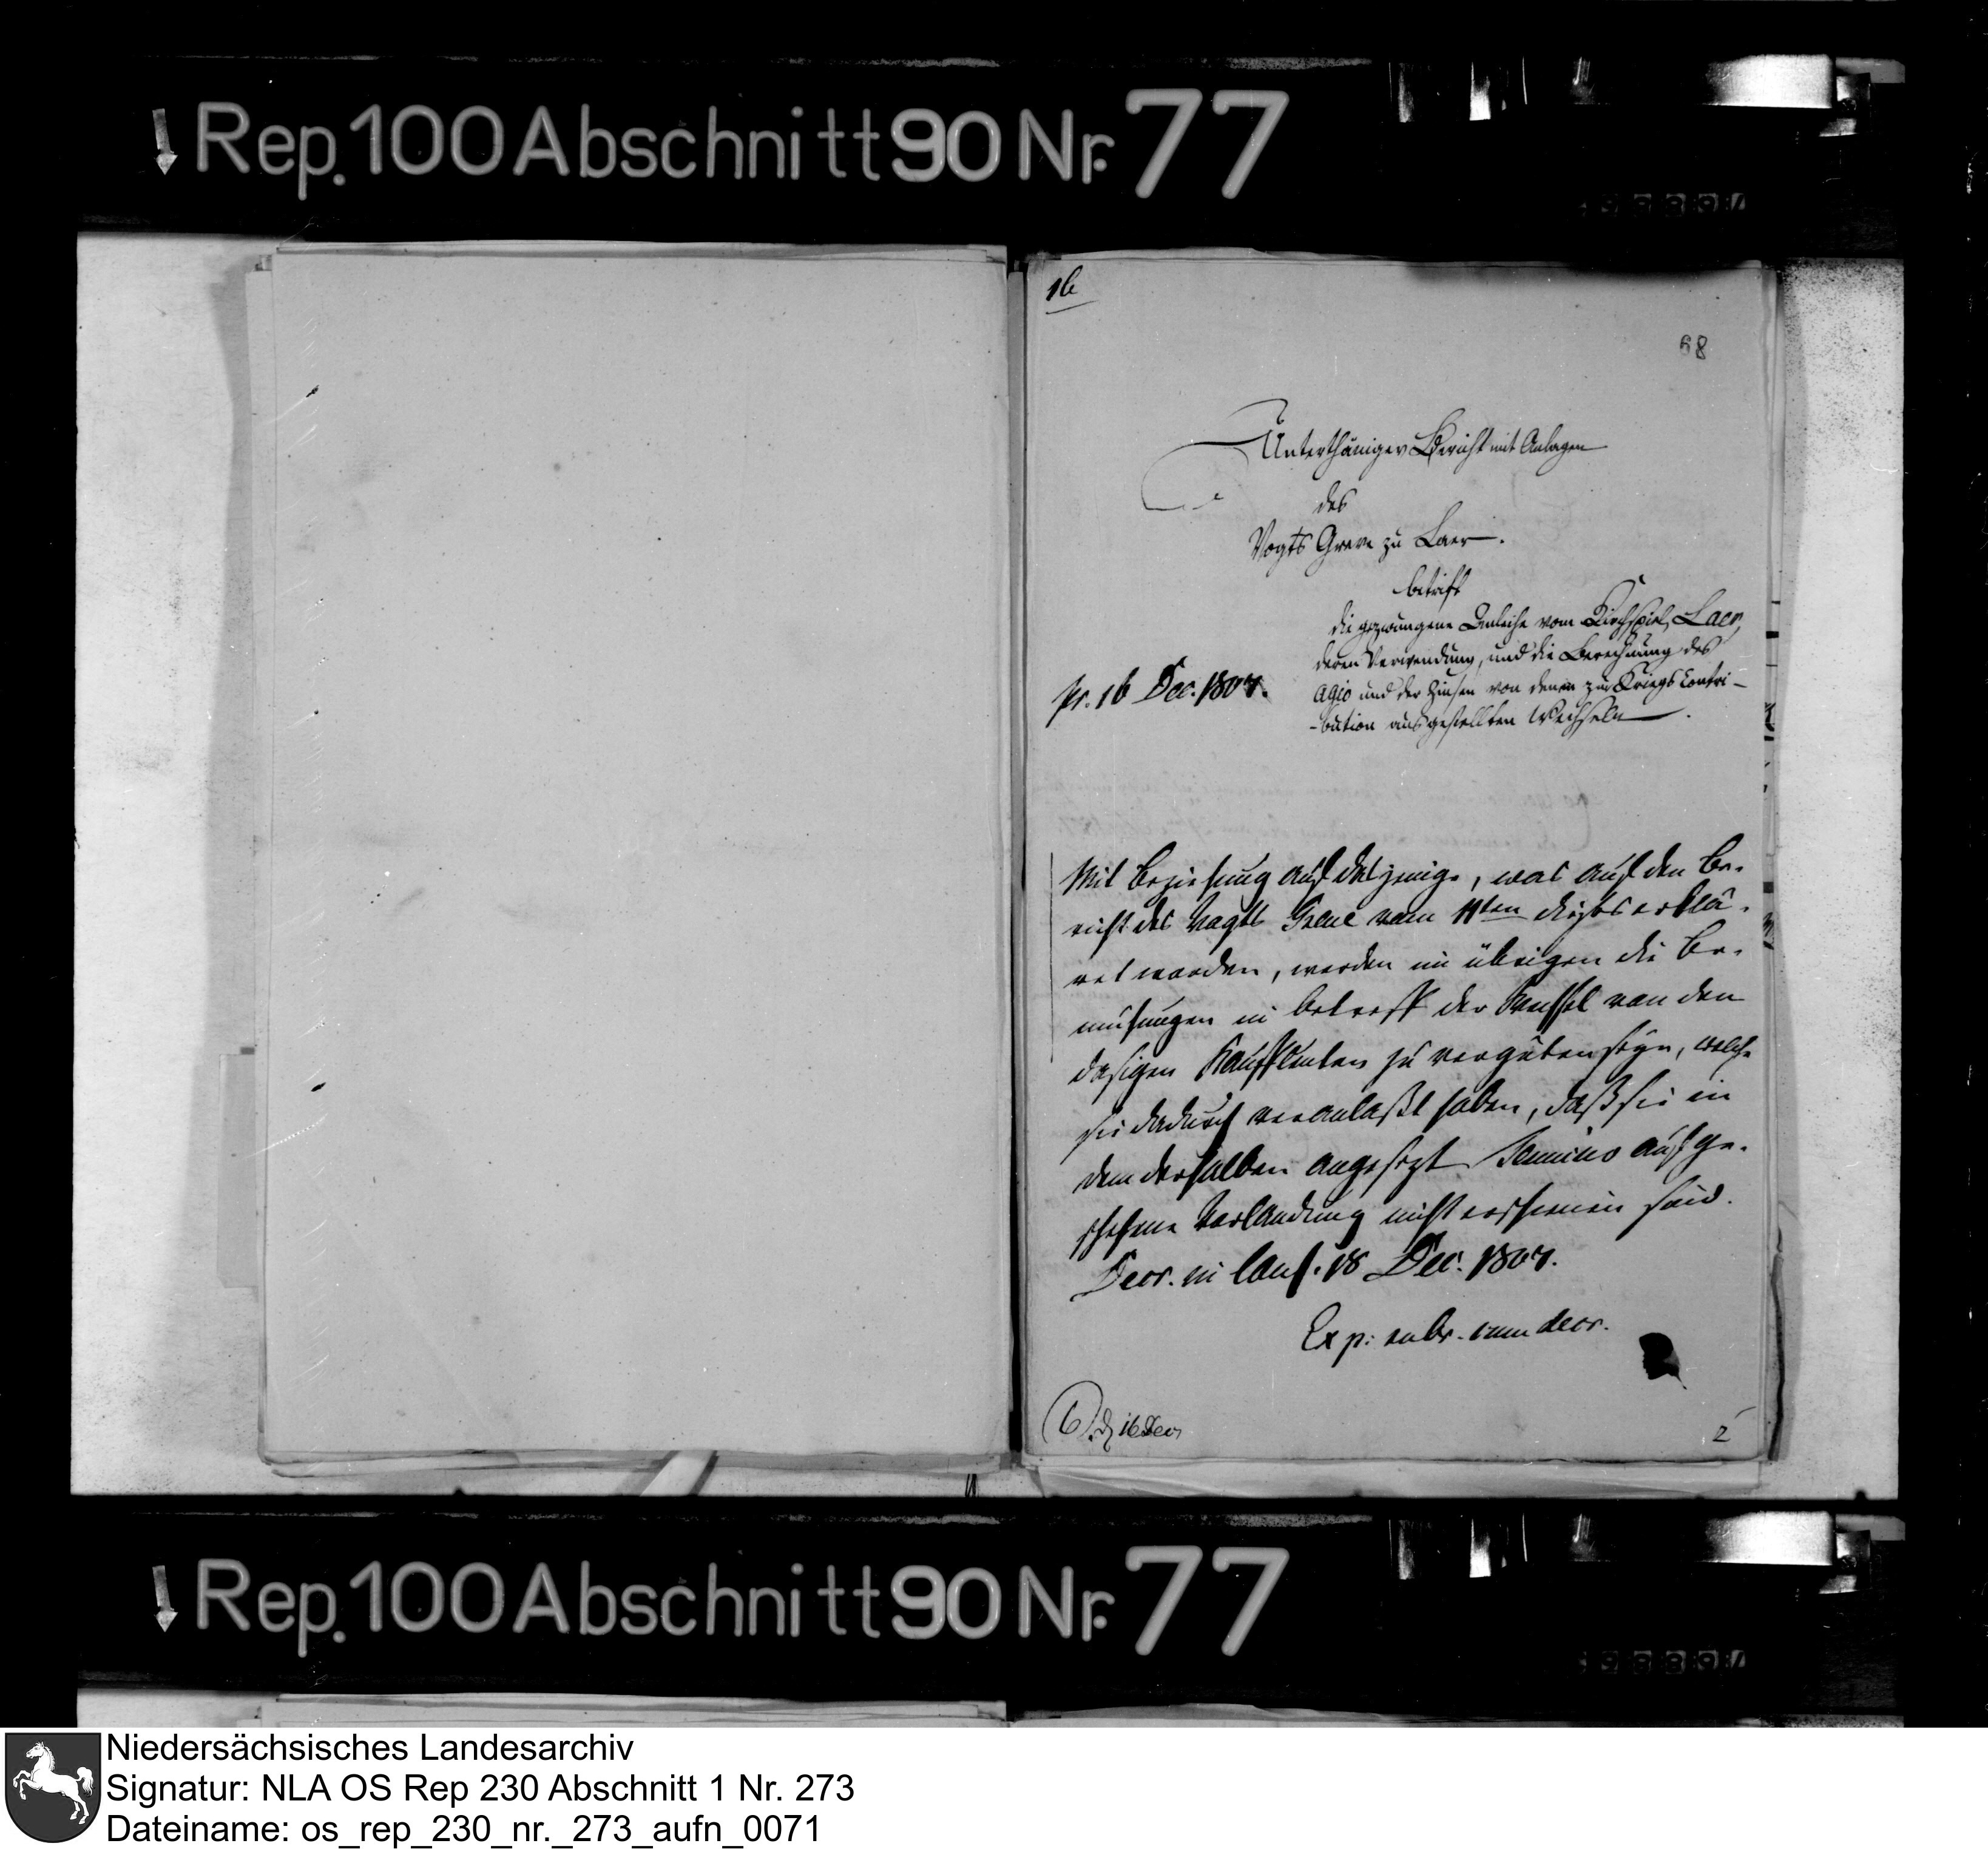 Rep. 100 Abschnitt 90 Nr. 77
16
68
Unterthäniger Bericht mit Anlagen
des
Vogts Greve zu Laer.
betrift
die gezwungene Anleihe vom Kirchspiel Laer,
deren Verwendung, und die Berechnung des
pr. 16 Dec. 1807.
Agio und der Zinsen von denen zur Kriegs Contri-
-bution ausgestellten Wechseln.
Mit Beziehung auf dasjenige, was auf den Be-
richt des Vogts Greve vom 11ten dieses erklä-
ret worden, werden im übrigen die Be-
mühungen in betreff der Wechsel von den
dasigen Kaufleuten zu vergüten seyn, welche
sie dadurch veranlaßt haben, daß sie in
dem derhalben angesezt Termino auf ge-
schehene Verladung nicht erschienen sind.
Decr. in Conf. 18 Dec. 1807.
Exp: cum decr.
16 Dec
2
Rep. 100 Abschnitt 90 Nr. 77
Niedersächsisches Landesarchiv
Signatur: NLA OS Rep 230 Abschnitt 1 Nr. 273
Dateiname: os_rep_230_nr._273_aufn_0071